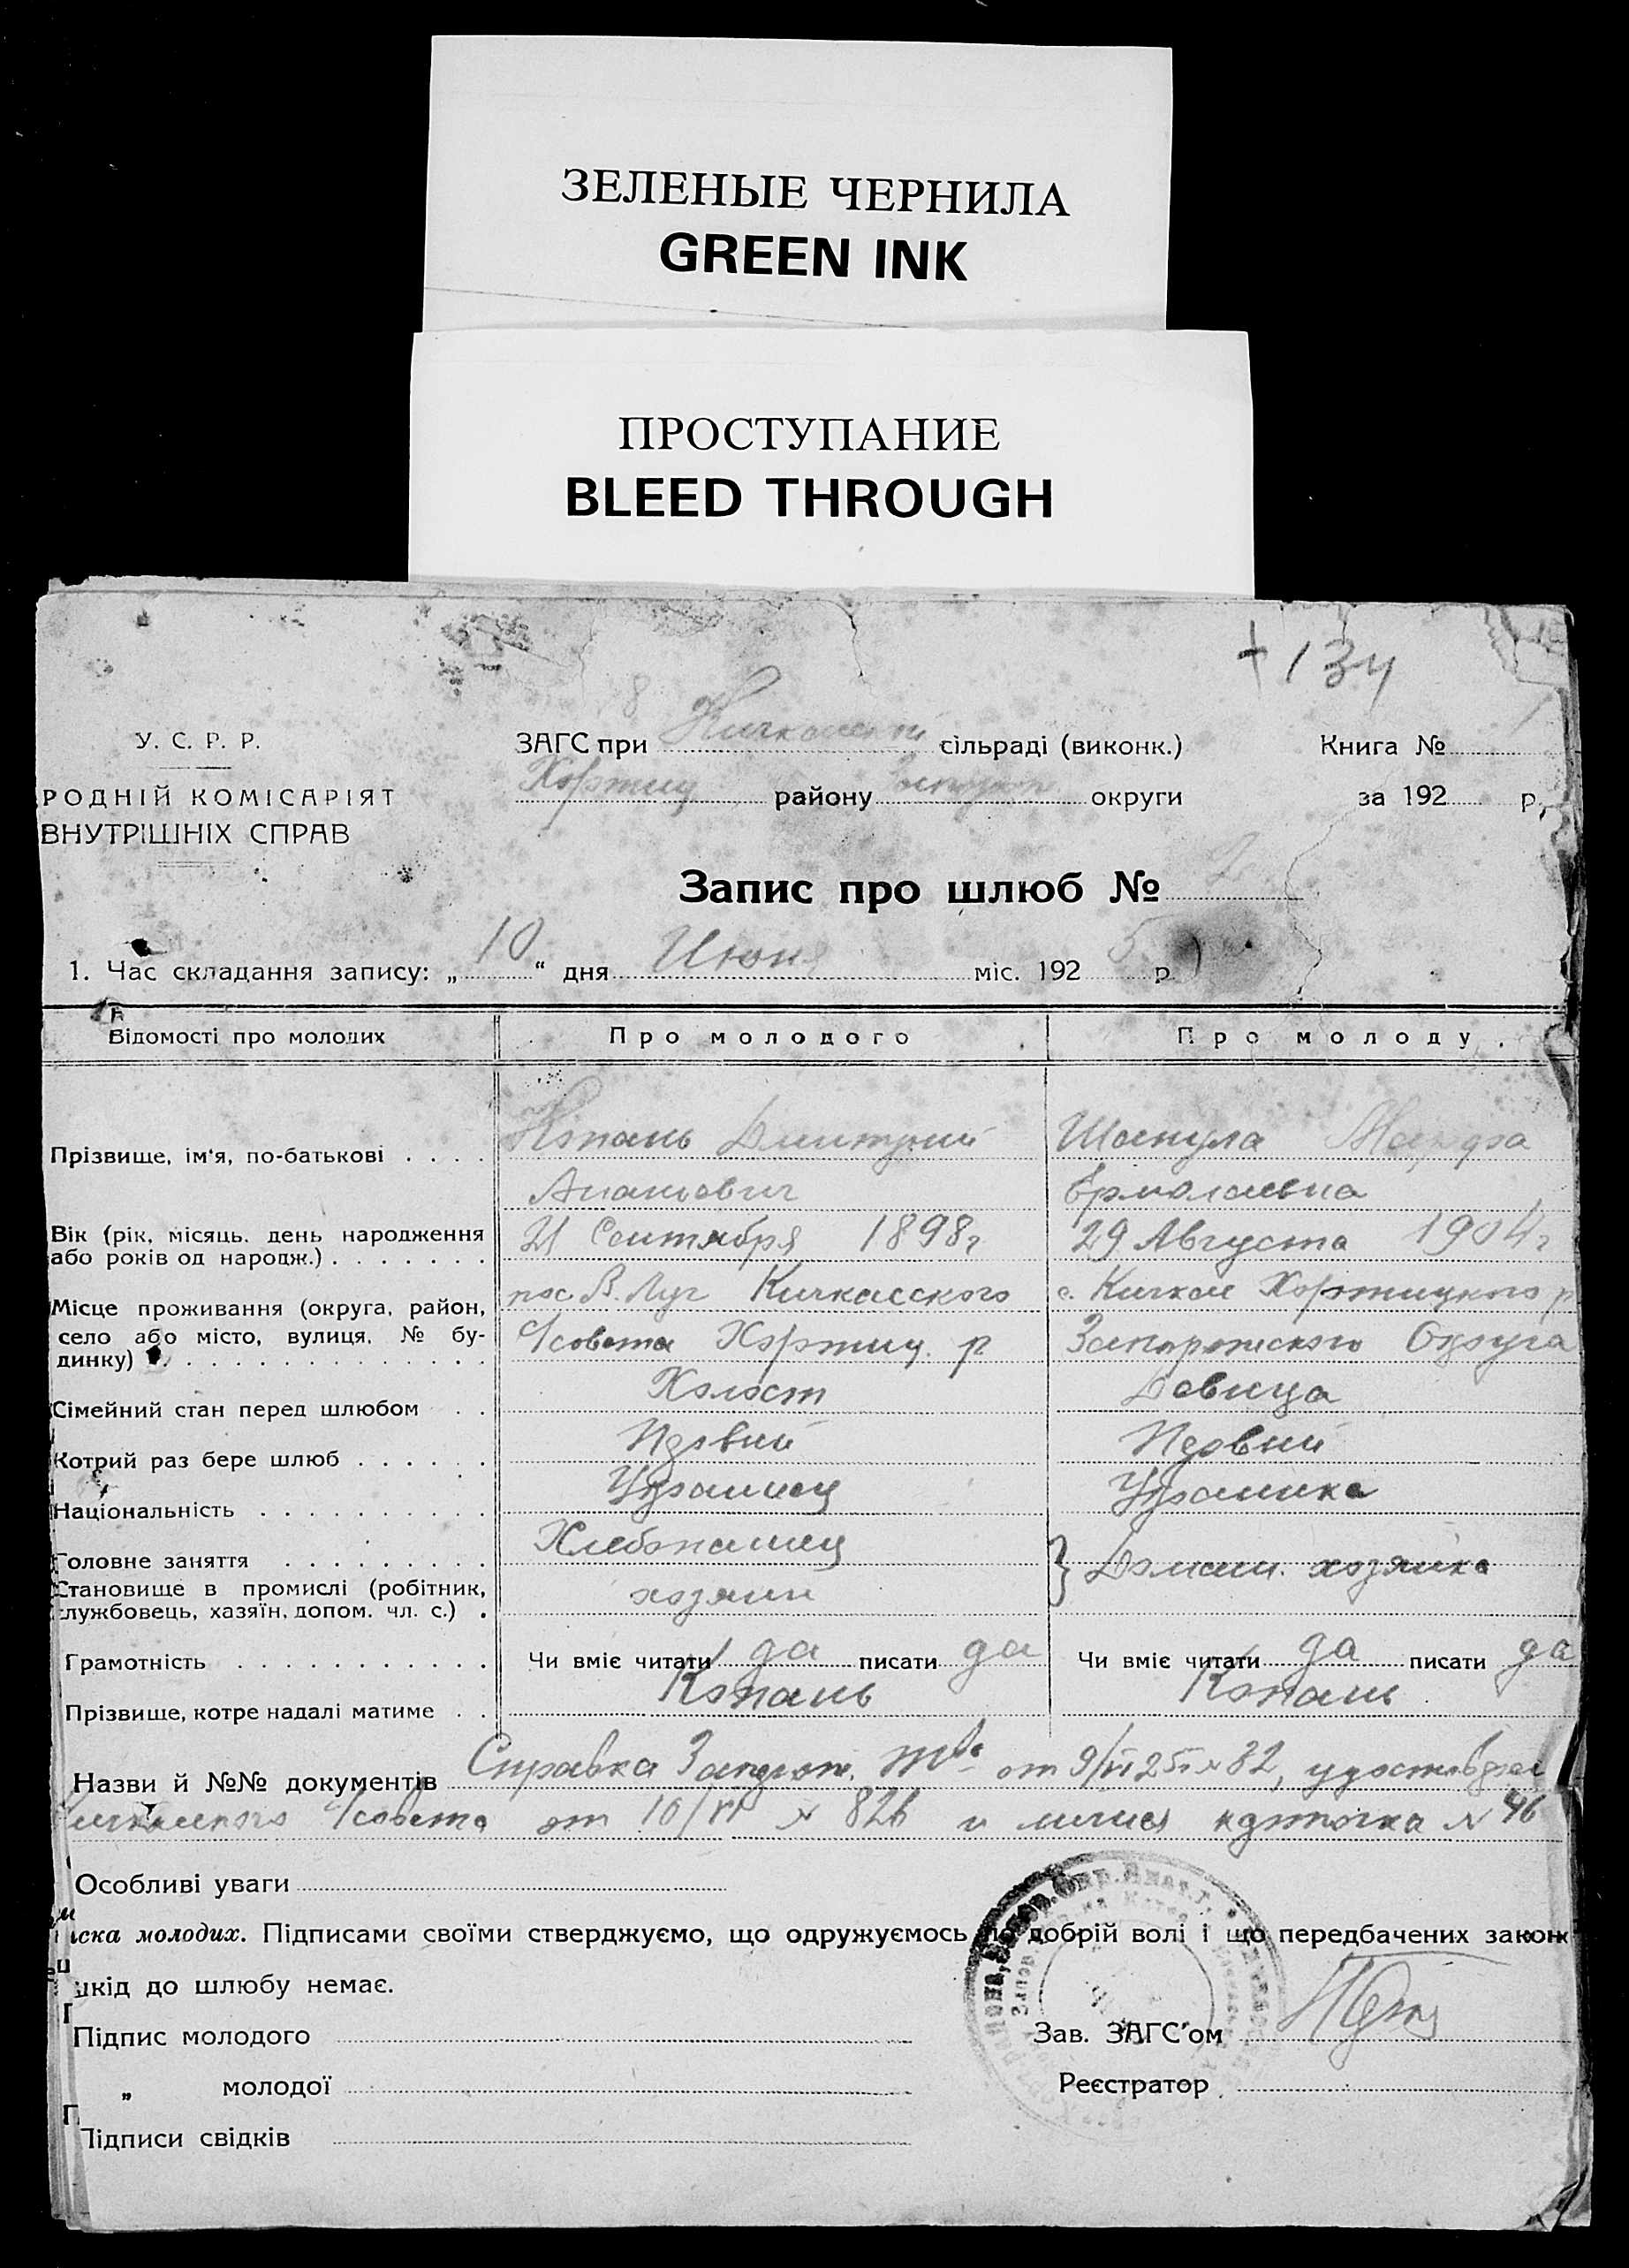 ЗЕЛЕНЫЕ ЧЕРНИЛА
GREEN INK
ПРОСТУПАНИЕ
BLEED THROUGH
+ 134
8
У. С. Р. Р.
ЗАГС при сільраді (виконк.) Книга №
РОДНІЙ КОМІСАРІЯТ
Хортиц району округи за 192 р.
ВНУТРІШНІХ СПРАВ
Запис про шлюб № 2
1. Час складання запису: „ 10 “ дня Июня міс. 192 5 р
Відомості про молодих Про молодого Про молоду.
Прізвище, ім'я, по-батькові Копань Дмитрий Шапула Марфа
Ананьович Ермолаевна
Вік (рік, місяць, день народження
або років од народж.) 21 Сентября 1898 г 29 Августа 1904 г
пос. В. Луг Кичкасского с. Кичкас Хортицкого р
Місце проживання (округа, район,
село або місто, вулиця, № бу-
динку) С/совета Хортиц. р Запорожского Округа
Сімейний стан перед шлюбом Холост Девица
Котрий раз бере шлюб Первий Первий
Національність Украинец Украинка
Головне заняття Хлебопашец } Домаш. хозяйка
Становище в промислі (робітник,
службовець, хазяїн, допом. чл. с.) хозяин
Грамотність Чи вміє читати да писати да Чи вміє читати да писати да
Прізвище, котре надалі матиме Копань Копань
Назви й №№ документів Справка от 9/VI 25 г № 82, удостоврен
Кичкасского С/совета от 10/VI № 826 и карточка № 46
Особливі уваги
иска молодих. Підписами своїми стверджуємо, що одружуємось по добрій волі і що передбачених закон
шкід до шлюбу немає.
Підпис молодого Зав. ЗАГС'ом
„ молодої Реєстратор
Підписи свідків